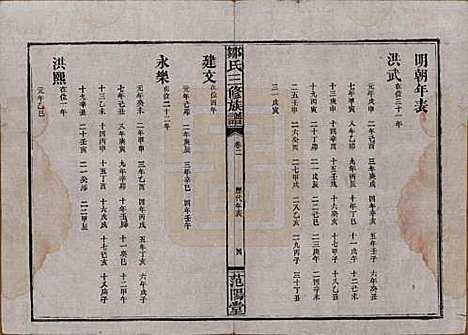 明朝年表
洪武
在位三十一年
元年戊申 二年己酉 三年庚戌 四年辛亥 五年壬子 六年癸丑
七年甲寅 八年乙卯 九年丙辰 十年丁巳 十一戊午 十二己未
十三庚申 十四辛酉 十五壬戌 十六癸亥 十七甲子 十八乙丑
十九丙寅 二十丁卯 二一戊辰 二二己巳 二三庚午 二四辛未
二五壬申 二六癸酉 二七甲戌 二八乙亥 二九丙子 三十丁丑
三一戊寅
鄒氏三修族譜 卷二 歷代年表 四 范陽堂
建文
在位四年
元年己卯 二年庚辰 三年辛巳 四年壬午
永樂
在位二十二年
元年癸未 二年甲申 三年乙酉 四年丙戌 五年丁亥 六年戊子
七年己丑 八年庚寅 九年辛卯 十年壬辰 十一癸巳 十二甲午
十三乙未 十四丙申 十五丁酉 十六戊戌 十七己亥 十八庚子
十九辛丑 二十壬寅 二一癸卯 二二甲辰
洪熙
在位一年
元年乙巳